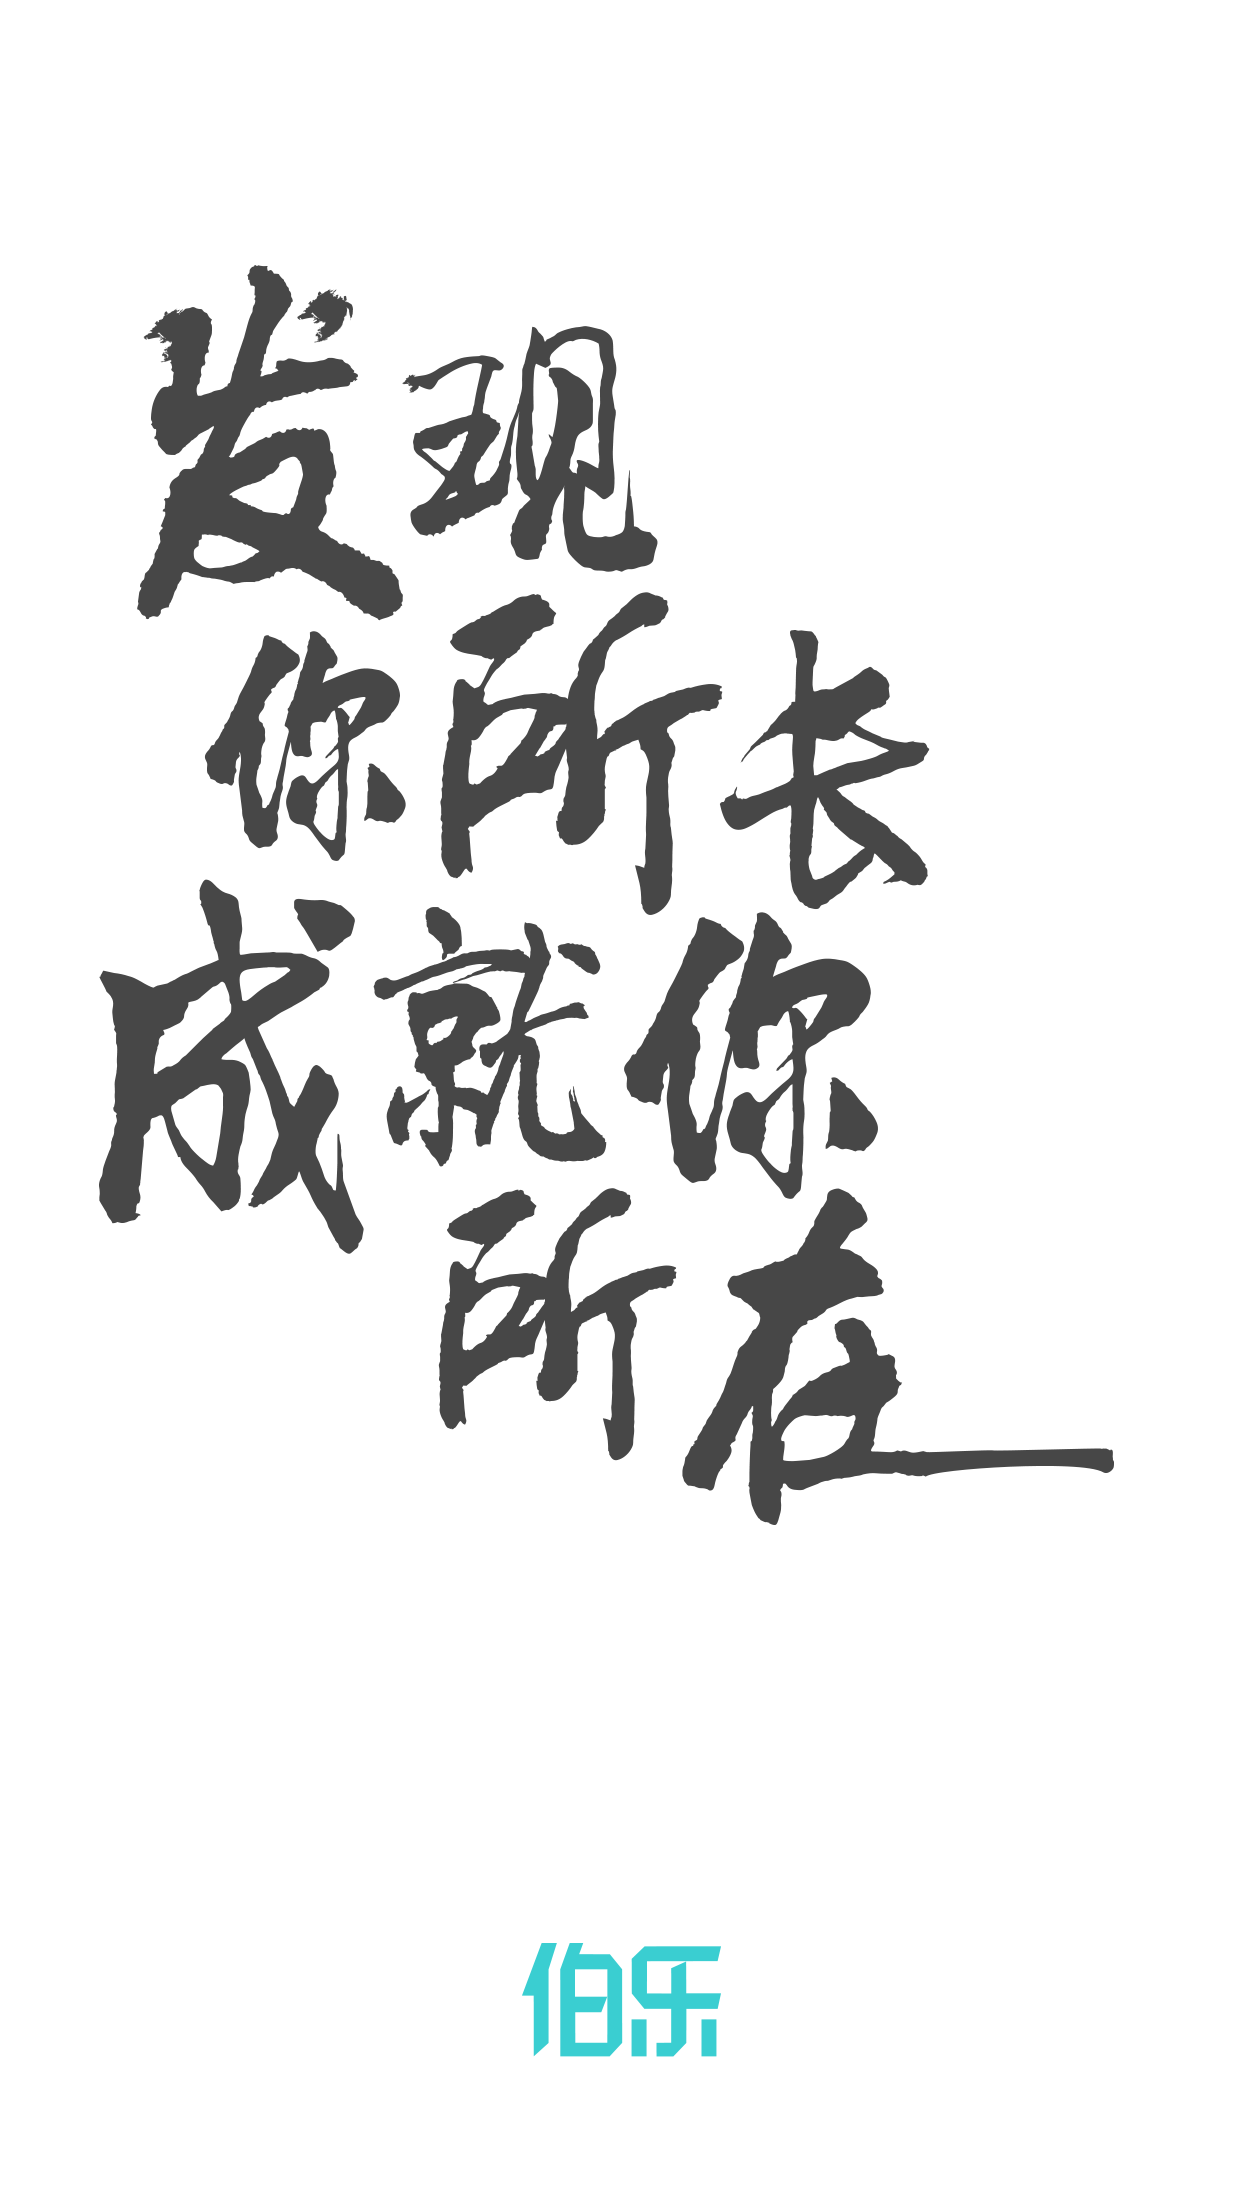 发现
你所长
成就你
所在
伯乐